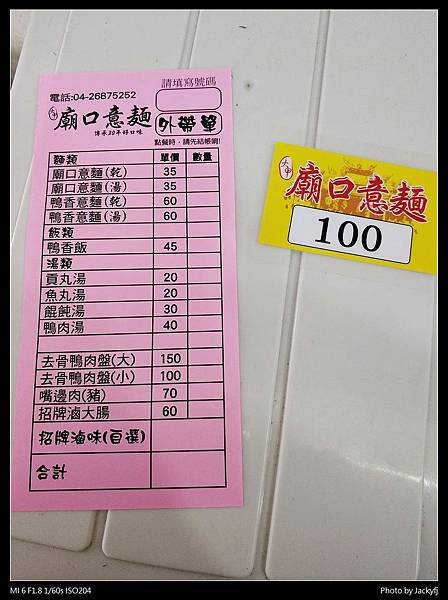 請填寫號碼
電話:04-26875252
大甲 廟口意麵
傳承30年好口味
外帶單
點餐時，請先結帳唷!
麵類 單價 數量
廟口意麵(乾) 35
廟口意麵(湯) 35
鴨香意麵(乾) 60
鴨香意麵(湯) 60
飯類
鴨香飯 45
湯類
貢丸湯 20
魚丸湯 20
餛飩湯 30
鴨肉湯 40
去骨鴨肉盤(大) 150
去骨鴨肉盤(小) 100
嘴邊肉(豬) 70
招牌滷大腸 60
招牌滷味(自選)
合計
大甲 廟口意麵
100
MI 6 F1.8 1/60s ISO204
Photo by Jackyfj